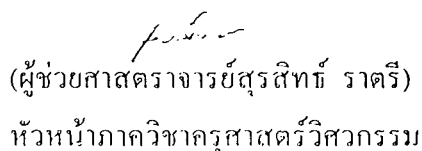 (ผู้ช่วยศาสตราจารย์สุรสิทธิ์ ราตรี)
หัวหน้าภาควิชาครุศาสตร์วิศวกรรม